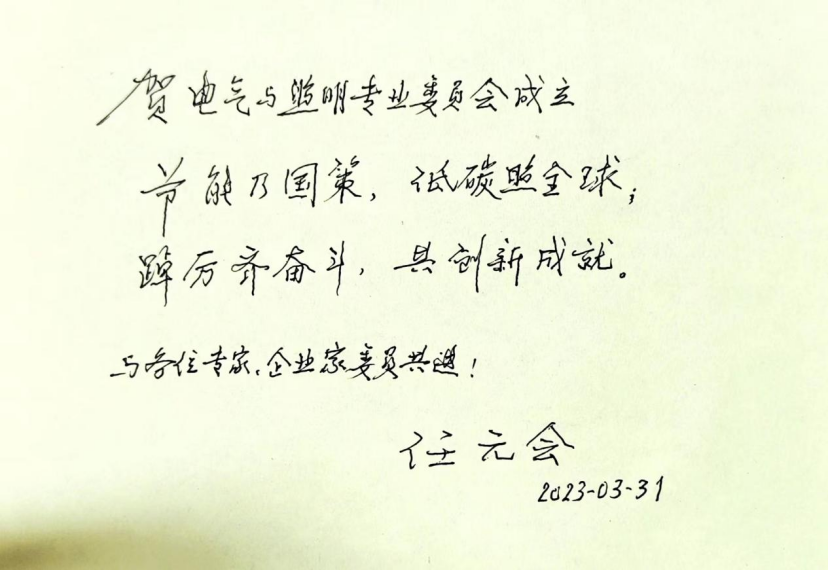 贺电气与照明专业委员会成立
节能乃国策，低碳照全球；
踔厉齐奋斗，共创新成就。
与各位专家、企业家委员共进！
任元会
2023-03-31